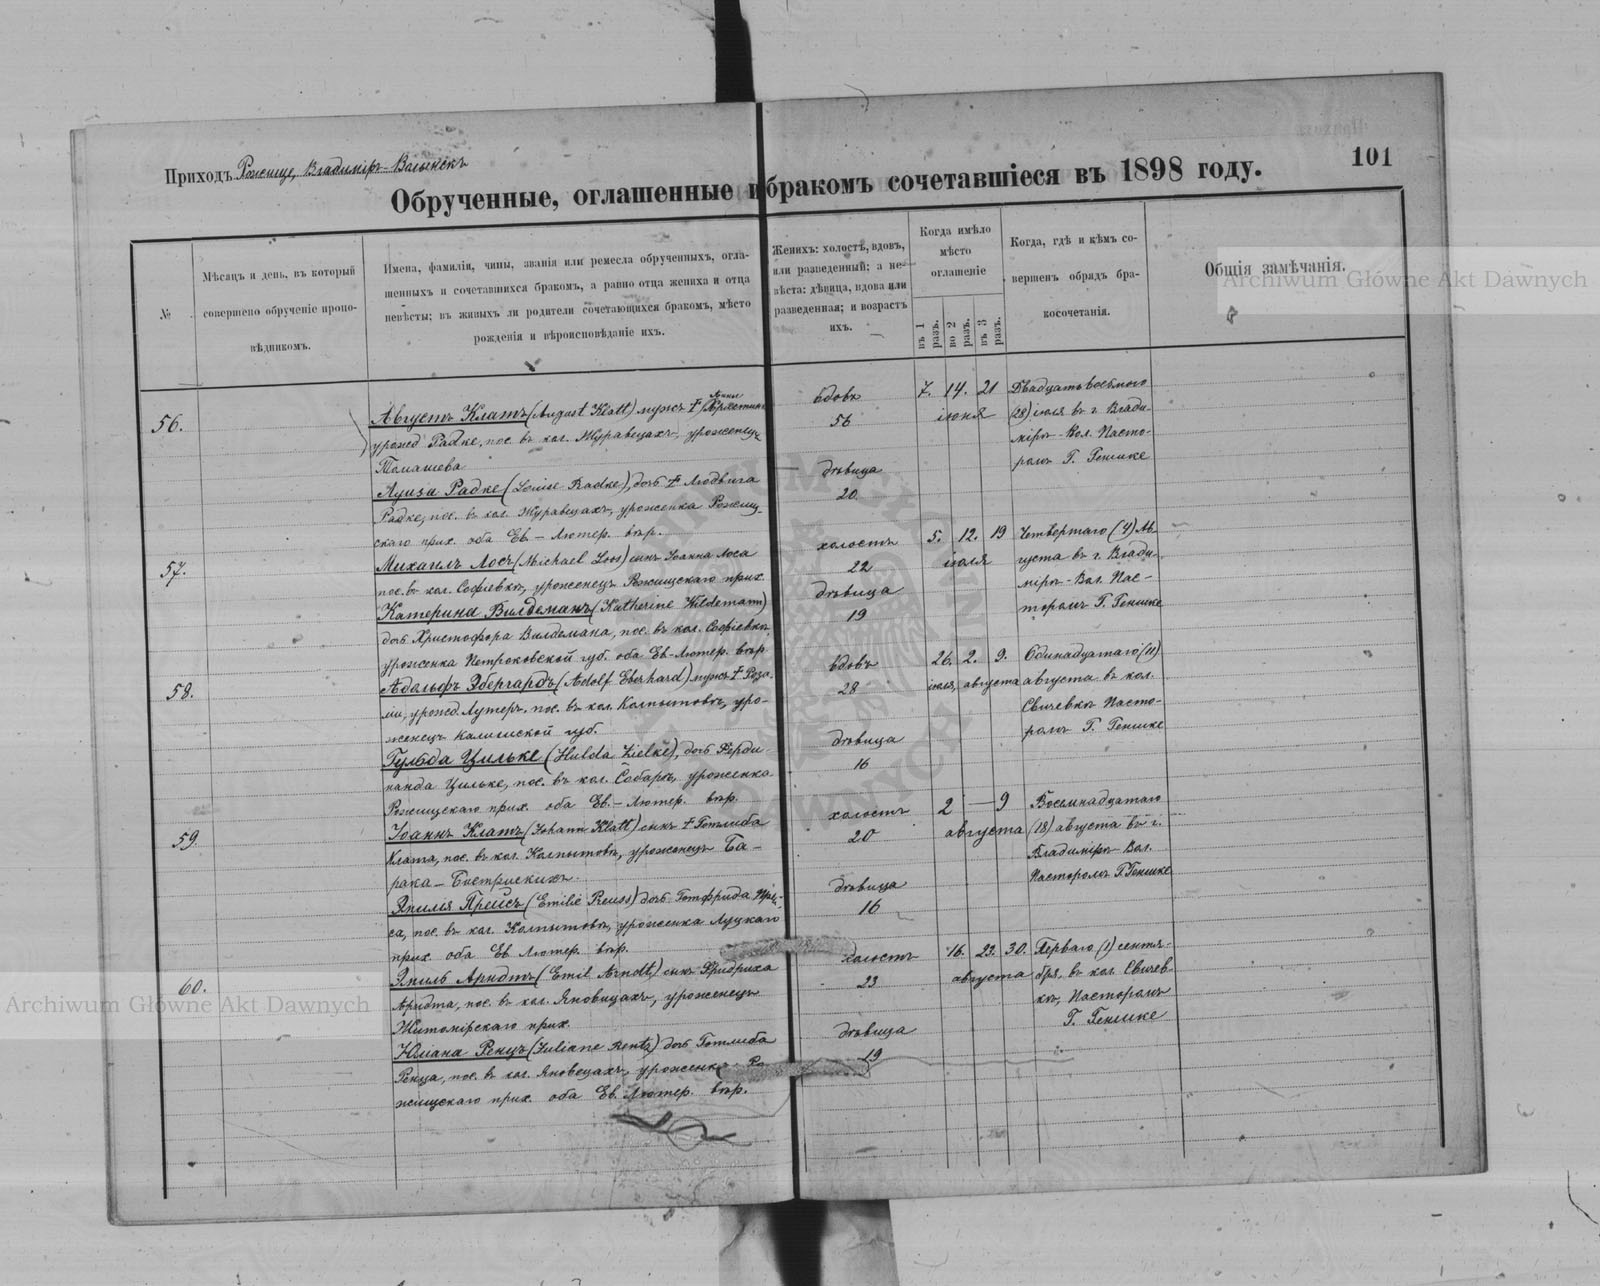 Приходъ Рожище, Владиміръ-Волынскъ
101
Обрученные, оглашенные и бракомъ сочетавшіеся въ 1898 году.
№
Мѣсяцъ и день, въ который
совершено обрученіе пропо-
вѣдникомъ.
Имена, фамиліи, чины, званія или ремесла обрученныхъ, огла-
шенныхъ и сочетавшихся бракомъ, а равно отца жениха и отца
невѣсты; въ живыхъ ли родители сочетающихся бракомъ, мѣсто
рожденія и вѣроисповѣданіе ихъ.
Женихъ: холостъ, вдовъ,
или разведенный; а не-
вѣста: дѣвица, вдова или
разведенная; и возрастъ
ихъ.
Когда имѣло
мѣсто
оглашеніе
въ 1 разъ.
во 2 разъ.
въ 3 разъ.
Когда, гдѣ и кѣмъ со-
вершенъ обрядъ бра-
косочетанія.
Общія замѣчанія.
Archiwum Główne Akt Dawnych
56.
Августъ Клатъ (August Klatt) мужъ †
урожд. Радке, пос. въ кол. Журавецахъ, уроженецъ
Томашева
Луиза Радке (Louise Radke), дочь † Людвига
Радке, пос. въ кол. Журавецахъ, уроженка Рожищ-
скаго прих. оба Ев.-Лютер. вѣр.
вдовъ
56
дѣвица
20
7. 14. 21
іюня
Двадцать восьмого
(28) іюля въ г. Влади-
міръ-Вол. Пасто-
ромъ Г. Геншке
57.
Михаилъ Лосъ (Michael Loos) сынъ Іоанна Лоса
пос. въ кол. Софіевкѣ, уроженецъ Рожищскаго прих.
Катерина Вилдеманъ (Katherine Wildemann)
дочь Христофора Вилдемана, пос. въ кол. Софіевкѣ,
уроженка Петроковской губ. оба Ев-Лютер. вѣр.
холостъ
22
дѣвица
19
5. 12. 19
іюля
Четвертаго (4) Ав-
густа въ г. Влади-
міръ-Вол. Пас-
торомъ Г. Геншке
58.
Адольфъ Эбергардъ (Adolf Eberhard) мужъ † Роза-
ліи, урожд. Лутеръ, пос. въ кол. Колпытовкѣ, уро-
женецъ Калишской губ.
Гульда Цильке (Hulda Zielke), дочь Ферди-
нанда Цильке, пос. въ кол. Собаръ, уроженка
Рожищскаго прих. оба Ев.-Лютер. вѣр.
вдовъ
28
дѣвица
16
26. 2. 9.
іюля, августа
Одинадцатаго (11)
августа въ кол.
Свичевкѣ Пасто-
ромъ Г. Геншке
59.
Іоаннъ Клатъ (Johann Klatt) сынъ † Готлиба
Клата, пос. въ кол. Колпытовкѣ, уроженецъ Ба-
рака-
Эмилія Прейсъ (Emilie Preuss) дочь Готфрида Прей-
са, пос. въ кол. Колпытовкѣ, уроженка Луцкаго
прих. оба Ев. Лютер. вѣр.
холостъ
20
дѣвица
16
2 — 9
августа
Восемнадцатаго
(18) августа въ г.
Владиміръ-Вол.
Пасторомъ Г. Геншке
60.
Эмиль Арндтъ (Emil Arndt) сынъ Фридриха
Арндта, пос. въ кол. Яновицахъ, уроженецъ
Житомірскаго прих.
Юліана Ренцъ (Juliane Rentz) дочь Готлиба
Ренца, пос. въ кол. Яновецахъ, уроженка Ро-
жищскаго прих. оба Ев. Лютер. вѣр.
холостъ
23
дѣвица
19
16. 23. 30.
августа
Перваго (1) сентя-
бря, въ кол. Свичев-
кѣ, Пасторомъ
Г. Геншке
Archiwum Główne Akt Dawnych